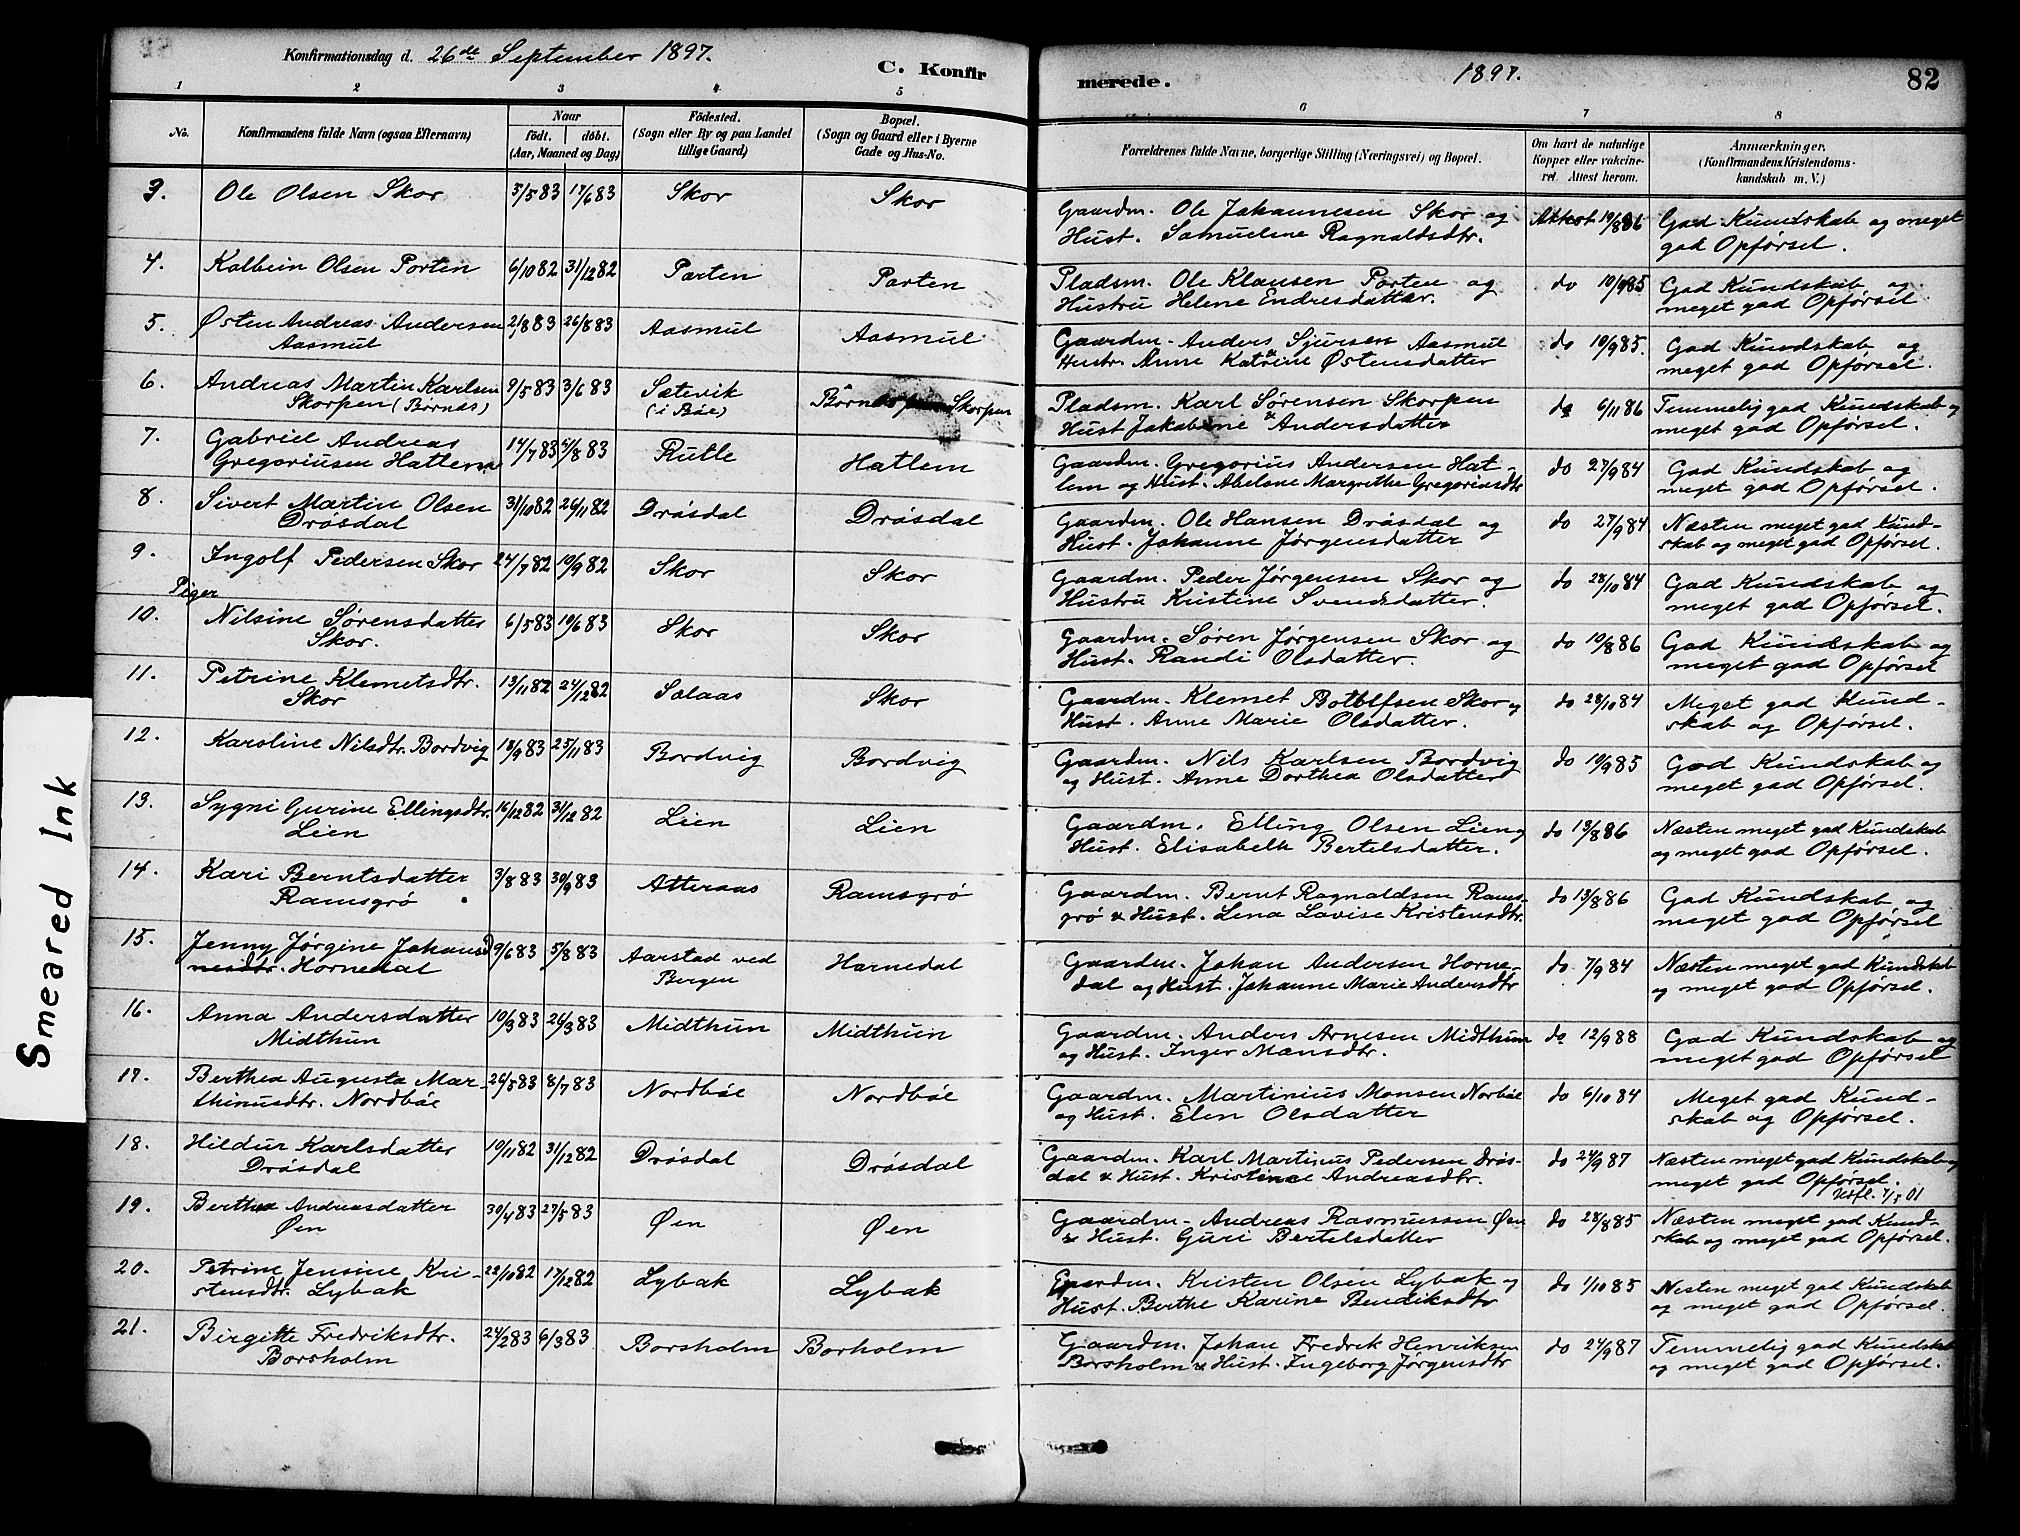 Konfirmationsdag d. 26de September 1897.
C. Konfir
merede.
1897.
82
1 2 3 4 5 6 7 8
No.
Konfirmandens fulde Navn (ogsaa Efternavn)
Naar
født. døbt.
(Aar, Maaned og Dag)
Fødested.
(Sogn eller By og paa Landet
tillige Gaard)
Bopæl.
(Sogn og Gaard eller i Byerne
Gade og Hus-No.
Forældrenes fulde Navne, borgerlige Stilling (Næringsvei) og Bopæl.
Om havt de naturlige
Kopper eller vakcine-
ret Attest herom.
Anmærkninger.
(Konfirmandens Kristendoms-
kundskab m. V.)
3. Ole Olsen Skor 5/5 83 17/6 83 Skor Skor Gaardm. Ole Johannesen Skor og Attest 10/8 86 God Kundskab og meget
Hust. Samueline Ragnaldsdtr. god Opførsel.
4. Kolbein Olsen Porten 6/10 82 31/12 82 Porten Porten Pladsm. Ole Klausen Porten og do 10/9 85 God Kundskab og
Hustru Helene Endresdatter. meget god Opførsel.
5. Østen Andreas Andersen 2/8 83 26/8 83 Aasmul Aasmul Gaardm. Anders Sjursen Aasmul do 10/9 85. God Kundskab og
Aasmul Hustr. Anne Katrine Østensdatter meget god Opførsel.
6. Andreas Martin Karlsen 9/5 83 3/6 83 Sætevik Skorpen Pladsm. Karl Sørensen Skorpen do 6/11 86 Temmelig god Kundskab og
Skorpen (Børnes) (i Bøe) Hust Jakobine Andersdatter meget god Opførsel.
7. Gabriel Andreas 14/7 83 /8 83 Rutle Hatlem Gaardm. Gregorius Andersen Hat- do 27/9 84 God Kundskab og
Gregoriusen Hatlem lem og Hust. Abelone Margrethe Gregoriusdtr meget god Opførsel.
8. Sivert Martin Olsen 31/10 82 26/11 82 Drøsdal Drøsdal Gaardm. Ole Hansen Drøsdal og do 27/9 84 Næsten meget god Kund-
Drøsdal Hust. Johanne Jørgensdatter skab og meget god Opførsel.
9. Ingolf Pedersen Skor 24/7 82 10/9 82 Skor Skor Gaardm. Peder Jørgensen Skor og do 28/10 84 God Kundskab og
Hustru Kristine Svendsdatter. meget god Opførsel.
Piger
10. Nilsine Sørensdatter 6/5 83 10/6 83 Skor Skor Gaardm. Søren Jørgensen Skor og do 10/8 86 God Kundskab og
Skor. Hust. Randi Olsdatter. meget god Opførsel
11. Petrine Klemetsdtr. 13/11 82 24/12 82 Solaas Skor Gaardm. Klemet Botolfsen Skor og do 28/10 84 Meget god Kund-
Skor Hust. Anne Marie Olsdatter. skab og Opførsel.
12. Karoline Nilsdtr. Bordvig 18/9 83 25/11 83 Bordvig Bordvig Gaardm. Nils Karlsen Bordvig do 10/9 85 God Kundskab og
og Hust. Anne Dorthea Olsdatter meget god Opførsel.
13. Sygni Gurine Ellingsdtr. 16/12 82 31/12 82 Lien Lien Gaardm. Elling Olsen Lien og do 13/8 86 Næsten meget god Kundskab
Lien Hust. Elisabeth Bertelsdatter. og meget god Opførsel.
14. Kari Berntsdatter 3/8 83 30/9 83 Atteraas Ramsgrø Gaardm. Bernt Ragnaldsen Rams- do 13/8 86 God Kundskab og
Ramsgrø grø & Hust. Lena Lovise Kristensdtr. meget god Opførsel
15. Jenny Jørgine Johans 9/6 83 5/8 83 Aarstad ved Harnedal Gaardm. Johan Andersen Horne- do. 7/9 84 Næsten meget god Kundskab
nesdtr. Hornedal Bergen dal og Hust. Johanne Marie Andersdtr og meget god Opførsel.
16. Anna Andersdatter 10/3 83 26/3 83 Midthun Midthun Gaardm. Anders Arnesen Midthun do 12/9 88 God Kundskab og
Midthun og Hust. Inger Monsdtr. meget god Opførsel
17. Berthea Augusta Mar- 26/5 83 8/7 83 Nordbøe Nordbøe Gaardm. Martinius Monsen Norbøe do 6/10 84 Meget god Kund-
thinusdtr. Nordbøe og Hust. Elen Olsdatter skab og Opførsel.
18. Hildur Karlsdatter 19/11 82 31/12 82 Drøsdal Drøsdal Gaardm. Karl Martinus Pedersen Drøs- do 24/9 87 Næsten meget god Kundskab og
Drøsdal dal & Hust. Kristine Andreasdtr. meget god Opførsel.
Utfl. 7/5 01
19. Berthea Andreasdatter 30/4 83 27/5 83 Øen Øen Gaardm. Andreas Rasmussen Øen do 28/8 85 Næsten meget god Kund-
Øen & Hust. Guri Bertelsdatter skab og meget god Opførsel.
20. Petrine Jensine Kri- 22/10 82 17/12 82 Lybak Lybak Gaardm. Kristen Olsen Lybak og do 1/10 85 Nesten meget god Kundskab
stensdtr. Lybak Hust. Berthe Karine Bendiksdtr og meget god Opførsel.
21. Birgitte Fredriksdtr. 24/2 83 6/3 83 Borsholm Borholm Gaardm. Johan Fredrik Henriksen do 24/9 87 Temmelig god Kundskab
Borsholm Borsholm & Hust. Ingeborg Jørgensdtr og meget god Opførsel.
Smeared Ink